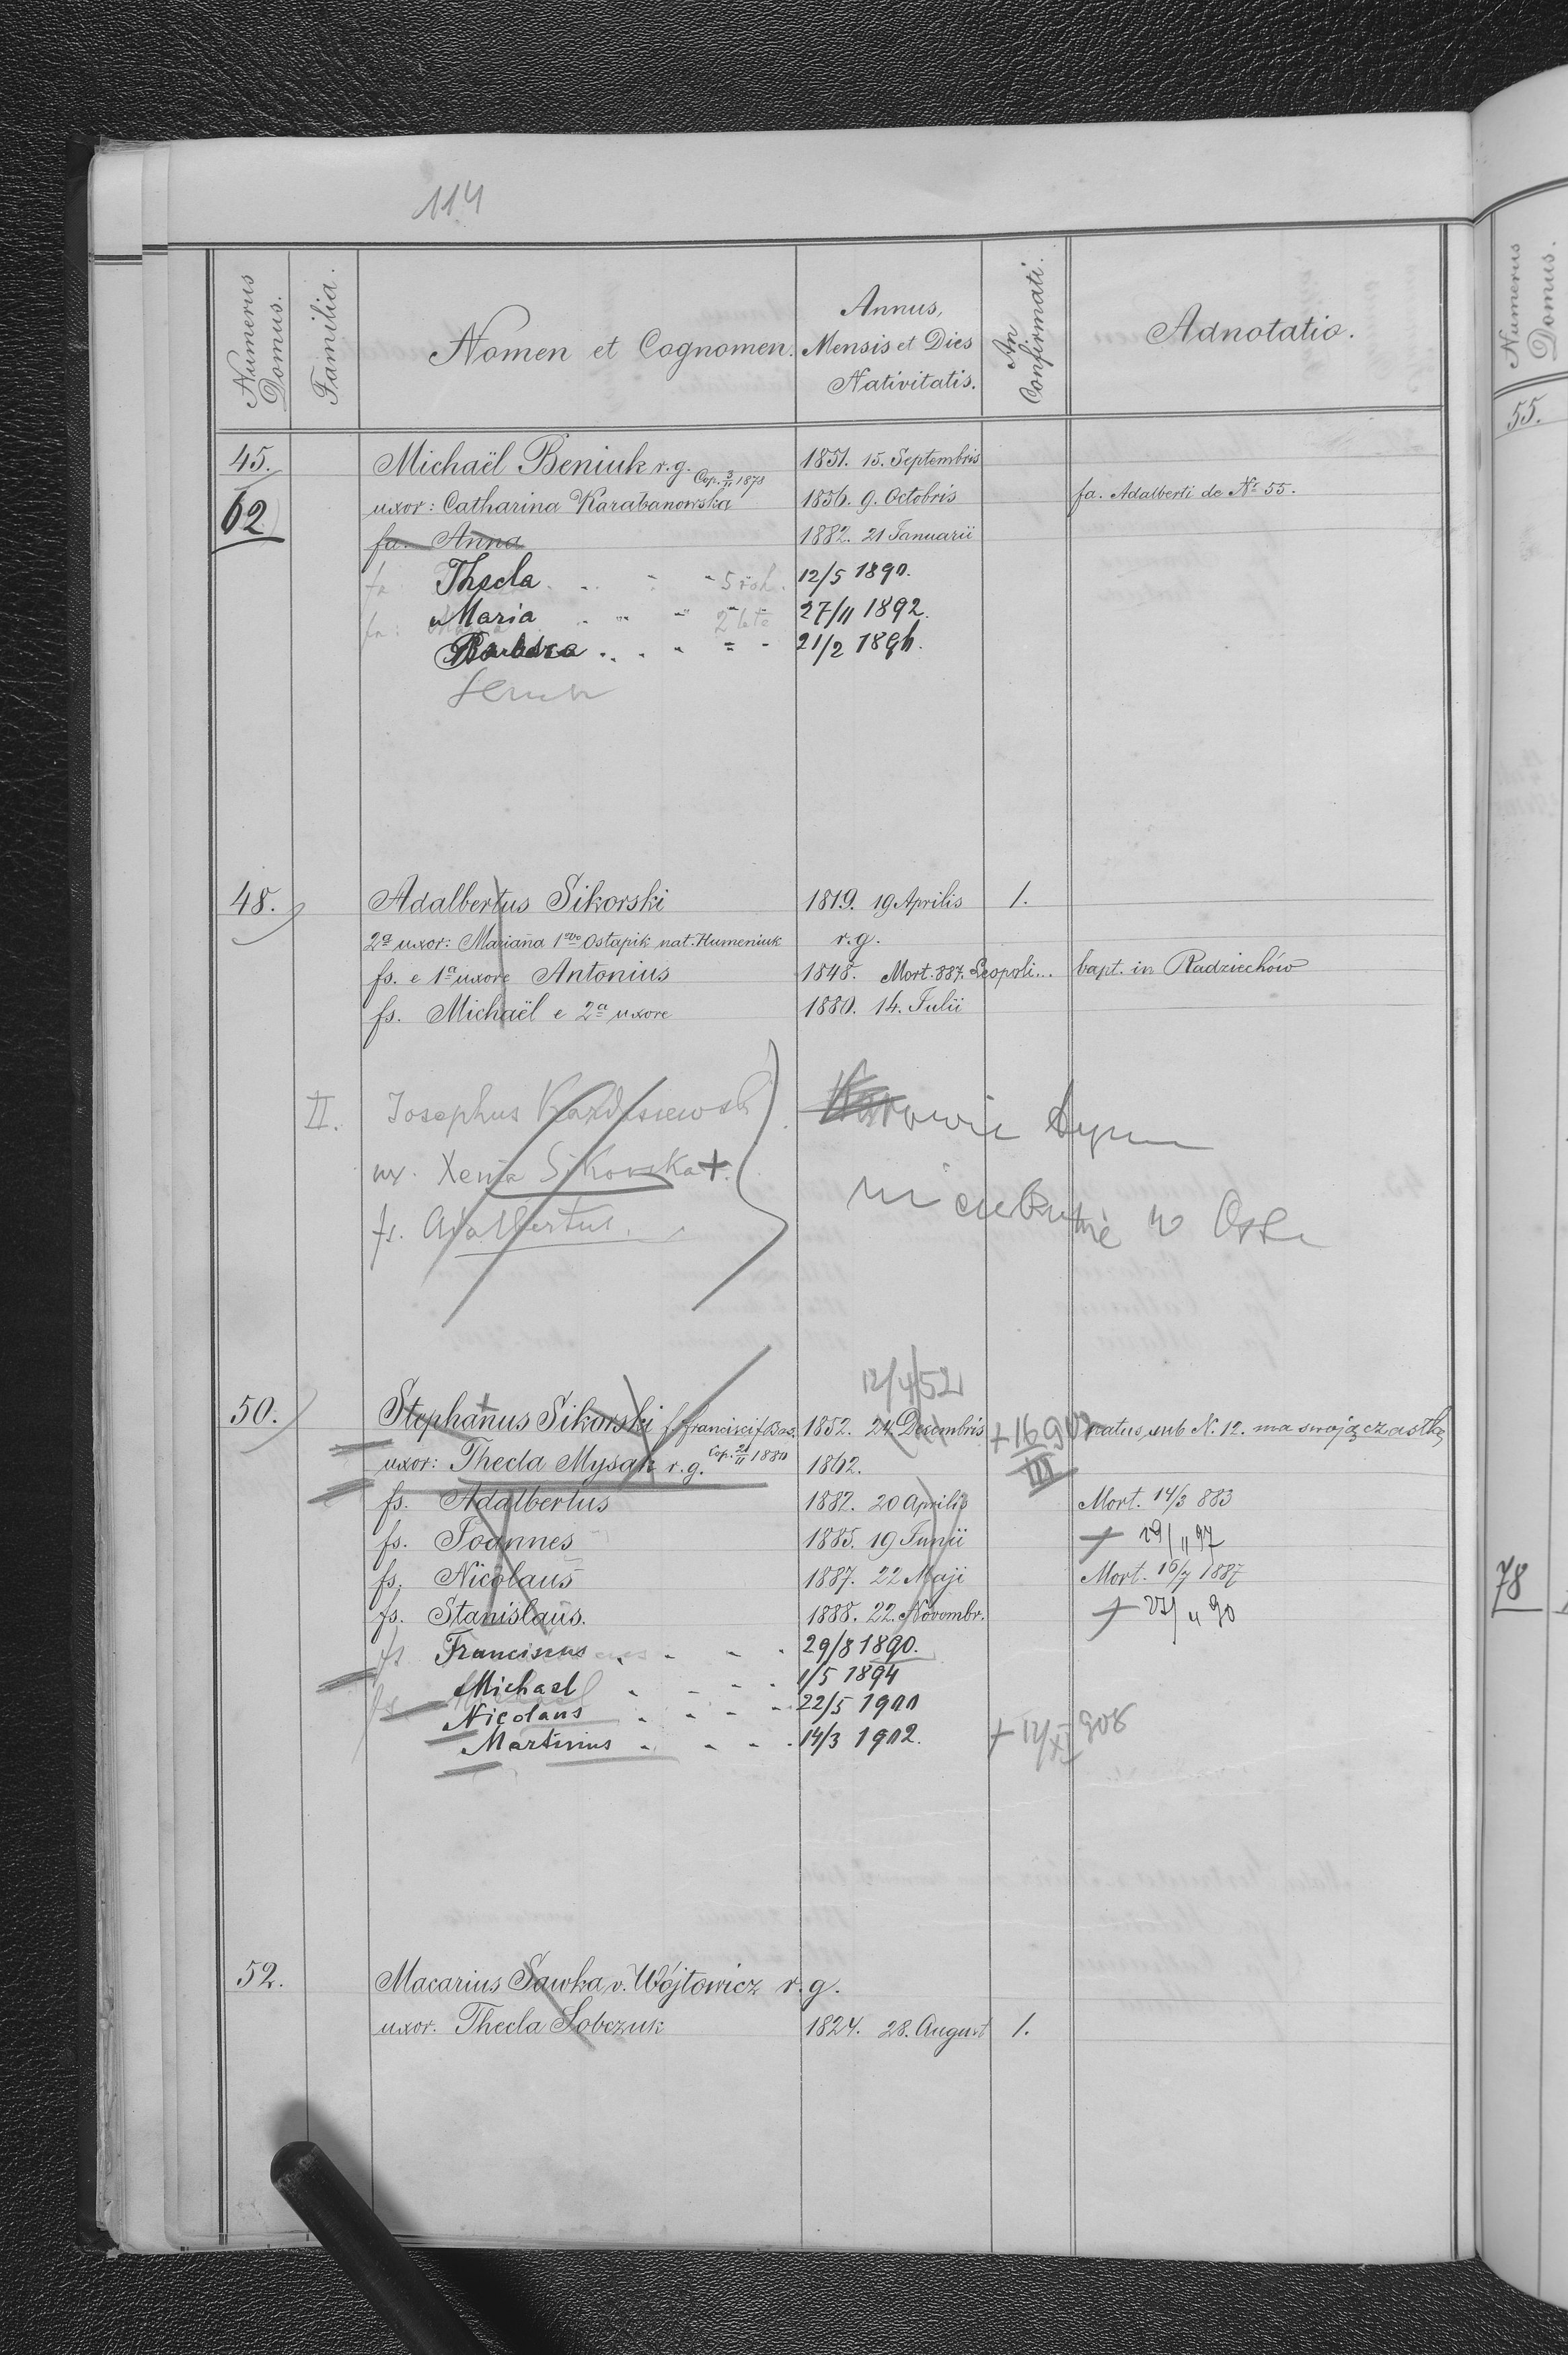 114
Numerus Domus. Familia. Nomen et Cognomen. Annus, Mensis et Dies Nativitatis. An Confirmati. Adnotatio.
45. Michaël Beniuk r.g. Cop. 3/11 1873 1851. 15. Septembris
62 uxor: Catharina Karabanowska 1856. 9. Octobris fa. Adalberti de Nr 55.
fa. Anna 1882. 21 Januarii
fa Thecla 5 rok. 12/5 1890.
fa: Maria 2 lete 27/11 1892.
Barbara 21/2 1896.
48. Adalbertus Sikorski 1819. 19 Aprilis 1.
2a uxor: Mariana 1mo Ostapik nat. Humeniuk r.g.
fs. e 1a uxore Antonius 1848. Mort. 887. Leopoli... bapt. in Radziechów
fs. Michaël e 2a uxore 1880. 14. Julii
II. Josephus
ux. Xenia Sikorska +
fs. Adalbertus
w
12/4/52
50. Stephanus Sikorski f. Francisci f Bas. 1852. 24. Decembris + 16 907 III natus sub N. 12. ma swoją cząstkę
uxor: Thecla Mysak r.g. Cop. 21/11 1880 1862.
fs. Adalbertus 1882. 20 Aprilis Mort. 14/3 883
fs. Joannes 1885. 19 Junii + 29/11 97
fs. Nicolaus 1887. 22 Maji Mort. 16/7 1887
fs. Stanislaus. 1888. 22. Novembr. + 27/11 90
fs Franciscus 29/8 1890.
fs Michael 1/5 1894
Nicolaus 22/5 1900
Martinus 14/3 1902. + 12/XI 908
52. Macarius Sawka v. Wójtowicz r.g.
uxor. Thecla Sobczuk 1824. 28. August 1.
Numerus Domus.
55.
78